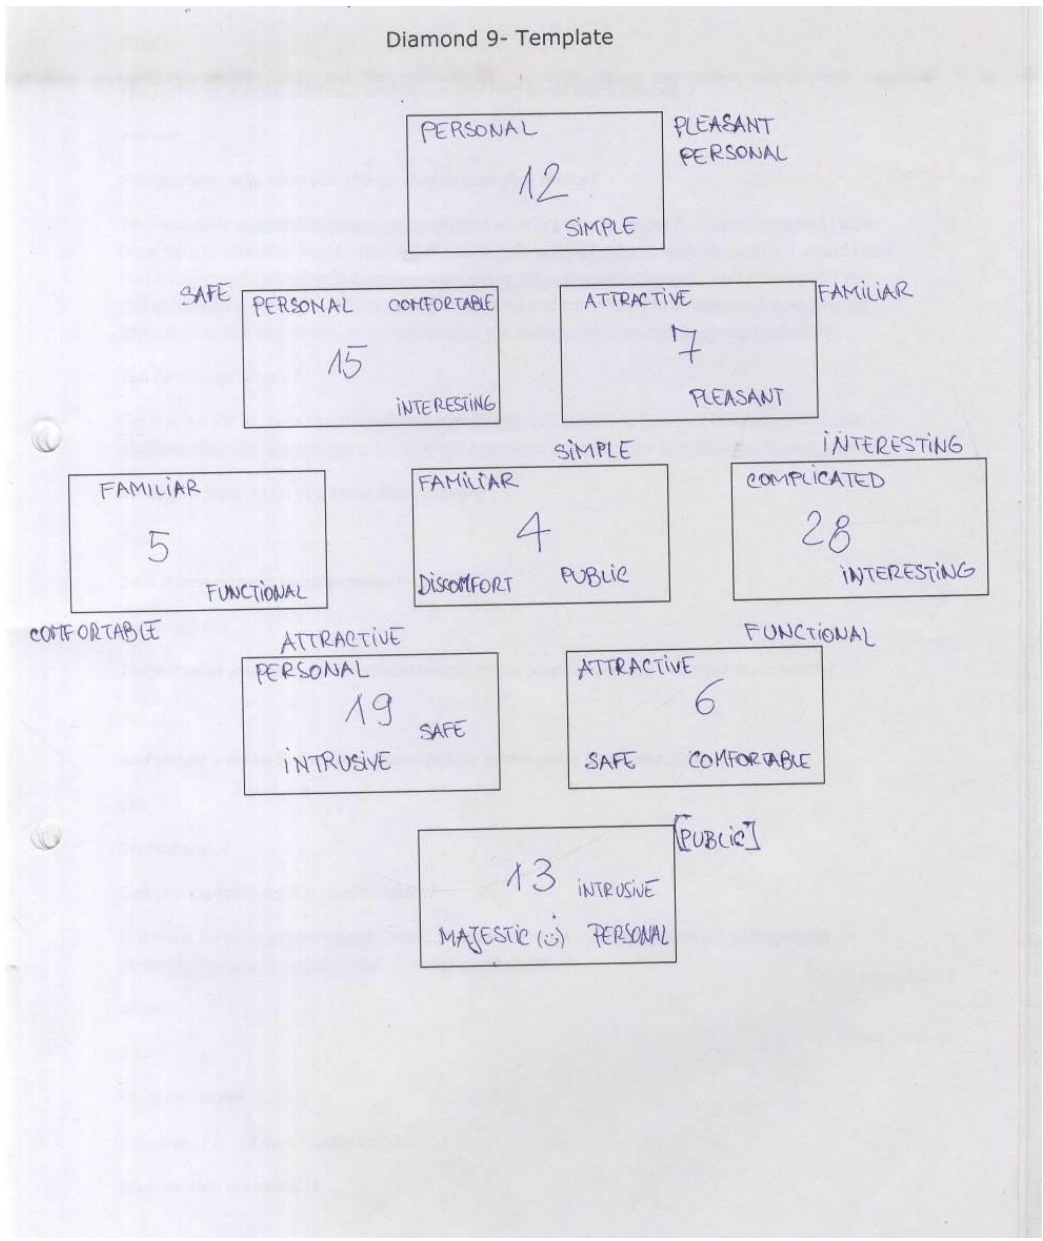 Diamond 9- Template
PERSONAL
12
SIMPLE
PLEASANT
PERSONAL
SAFE
PERSONAL COMFORTABLE
15
INTERESTING
ATTRACTIVE
7
PLEASANT
FAMILIAR
FAMILIAR
5
FUNCTIONAL
COMFORTABLE
SIMPLE
FAMILIAR
4
DISCOMFORT PUBLIC
INTERESTING
COMPLICATED
28
INTERESTING
ATTRACTIVE
PERSONAL
19
SAFE
INTRUSIVE
FUNCTIONAL
ATTRACTIVE
6
SAFE COMFORTABLE
[PUBLIC]
13 INTRUSIVE
MAJESTIC (☺) PERSONAL